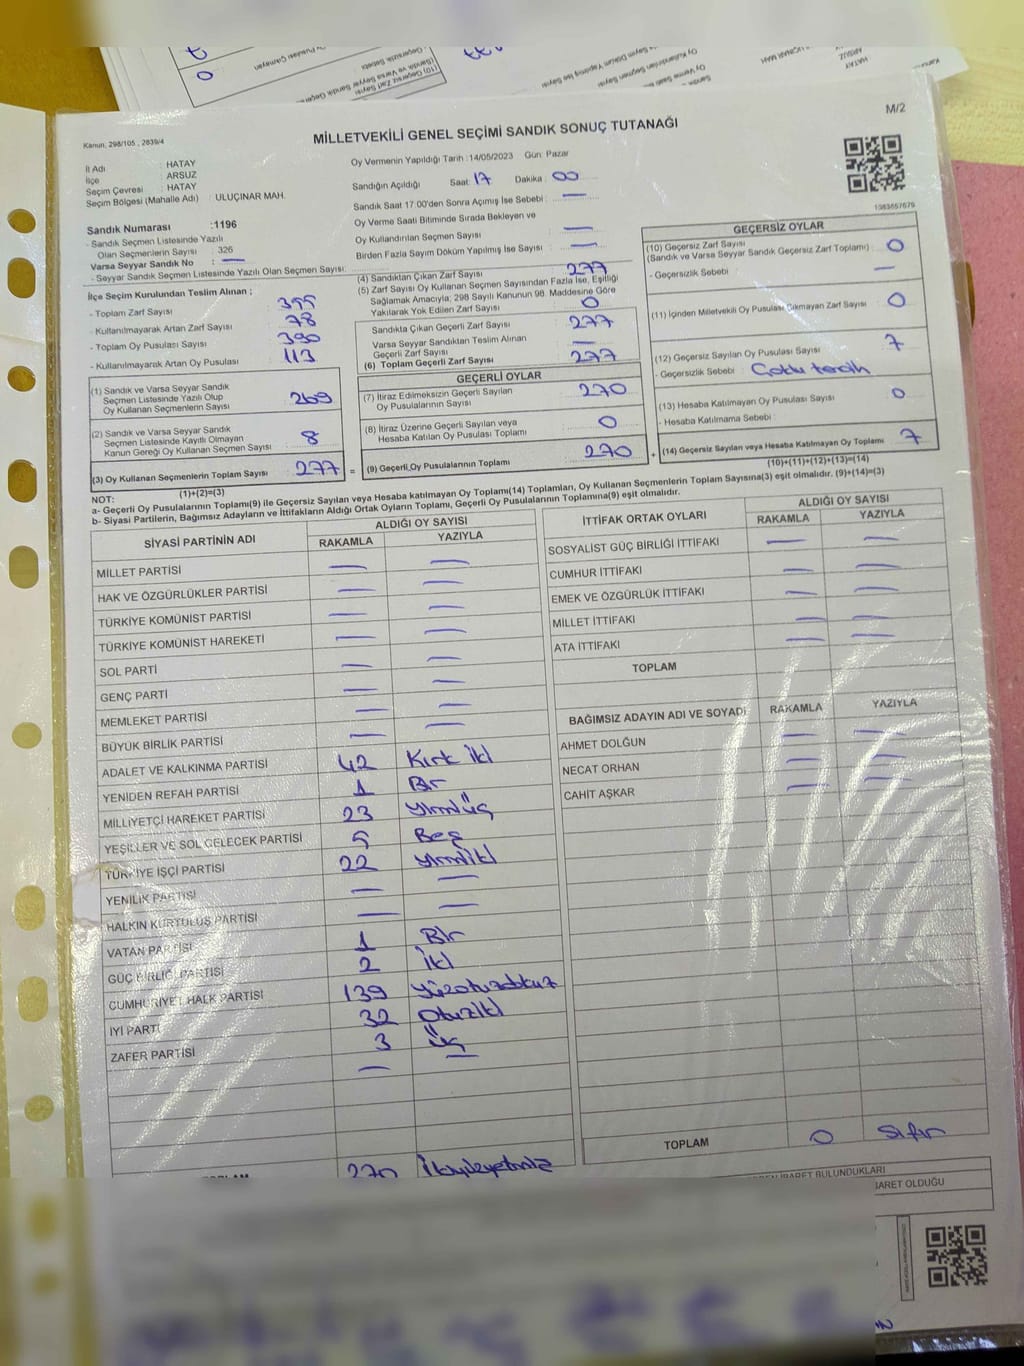 M/2
MİLLETVEKİLİ GENEL SEÇİMİ SANDIK SONUÇ TUTANAĞI
Kanun, 298/105 , 2839/4
İl Adı : HATAY
İlçe : ARSUZ
Seçim Çevresi : HATAY
Seçim Bölgesi (Mahalle Adı) : ULUÇINAR MAH.
Sandık Numarası :1196
- Sandık Seçmen Listesinde Yazılı
Olan Seçmenlerin Sayısı : 326
Varsa Seyyar Sandık No : —
- Seyyar Sandık Seçmen Listesinde Yazılı Olan Seçmen Sayısı:
Oy Vermenin Yapıldığı Tarih :14/05/2023 Gün: Pazar
Sandığın Açıldığı Saat: 17 Dakika : 00
Sandık Saat 17 00'den Sonra Açımış İse Sebebi : —
Oy Verme Saati Bitiminde Sırada Bekleyen ve
Oy Kullandırılan Seçmen Sayısı : —
Birden Fazla Sayım Döküm Yapılmış İse Sayısı : —
1983657679
İlçe Seçim Kurulundan Teslim Alınan ;
- Toplam Zarf Sayısı : 355
- Kullanılmayarak Artan Zarf Sayısı : 78
- Toplam Oy Pusulası Sayısı : 390
- Kullanılmayarak Artan Oy Pusulası : 113
(1) Sandık ve Varsa Seyyar Sandık
Seçmen Listesinde Yazılı Olup
Oy Kullanan Seçmenlerin Sayısı : 269
(2) Sandık ve Varsa Seyyar Sandık
Seçmen Listesinde Kayıtlı Olmayan
Kanun Gereği Oy Kullanan Seçmen Sayısı : 8
(3) Oy Kullanan Seçmenlerin Toplam Sayısı : 277 =
(1)+(2)=(3)
(4) Sandıktan Çıkan Zarf Sayısı : 277
(5) Zarf Sayısı Oy Kullanan Seçmen Sayısından Fazla İse, Eşitliği
Sağlamak Amacıyla; 298 Sayılı Kanunun 98. Maddesine Göre
Yakılarak Yok Edilen Zarf Sayısı : 0
Sandıkta Çıkan Geçerli Zarf Sayısı : 277
Varsa Seyyar Sandıktan Teslim Alınan
Geçerli Zarf Sayısı : —
(6) Toplam Geçerli Zarf Sayısı : 277
GEÇERLİ OYLAR
(7) İtiraz Edilmeksizin Geçerli Sayılan
Oy Pusulalarının Sayısı : 270
(8) İtiraz Üzerine Geçerli Sayılan veya
Hesaba Katılan Oy Pusulası Toplamı : 0
(9) Geçerli Oy Pusulalarının Toplamı : 270 +
GEÇERSİZ OYLAR
(10) Geçersiz Zarf Sayısı
(Sandık ve Varsa Seyyar Sandık Geçersiz Zarf Toplamı) : 0
- Geçersizlik Sebebi : —
(11) İçinden Milletvekili Oy Pusulası Çıkmayan Zarf Sayısı : 0
(12) Geçersiz Sayılan Oy Pusulası Sayısı : 7
- Geçersizlik Sebebi : Çoklu tercih
(13) Hesaba Katılmayan Oy Pusulası Sayısı : 0
- Hesaba Katılmama Sebebi :
(14) Geçersiz Sayılan veya Hesaba Katılmayan Oy Toplamı 7
(10)+(11)+(12)+(13)=(14)
NOT:
a- Geçerli Oy Pusulalarının Toplamı(9) ile Geçersiz Sayılan veya Hesaba katılmayan Oy Toplamı(14) Toplamları, Oy Kullanan Seçmenlerin Toplam Sayısına(3) eşit olmalıdır. (9)+(14)=(3)
b- Siyasi Partilerin, Bağımsız Adayların ve İttifakların Aldığı Ortak Oyların Toplamı, Geçerli Oy Pusulalarının Toplamına(9) eşit olmalıdır.
SİYASİ PARTİNİN ADI ALDIĞI OY SAYISI
RAKAMLA YAZIYLA
MİLLET PARTİSİ — —
HAK VE ÖZGÜRLÜKLER PARTİSİ — —
TÜRKİYE KOMÜNİST PARTİSİ — —
TÜRKİYE KOMÜNİST HAREKETİ — —
SOL PARTİ — —
GENÇ PARTİ — —
MEMLEKET PARTİSİ — —
BÜYÜK BİRLİK PARTİSİ — —
ADALET VE KALKINMA PARTİSİ 42 Kırk iki
YENİDEN REFAH PARTİSİ 1 Bir
MİLLİYETÇİ HAREKET PARTİSİ 23 yirmiüç
YEŞİLLER VE SOL GELECEK PARTİSİ 5 Beş
TÜRKİYE İŞÇİ PARTİSİ 22 yirmiiki
YENİLİK PARTİSİ — —
HALKIN KURTULUŞ PARTİSİ — —
VATAN PARTİSİ 1 Bir
GÜÇ BİRLİĞİ PARTİSİ 2 iki
CUMHURİYET HALK PARTİSİ 139 yüzotuzdokuz
İYİ PARTİ 32 Otuziki
ZAFER PARTİSİ 3 Üç
— —
270 ikiyüzyetmiş
İTTİFAK ORTAK OYLARI ALDIĞI OY SAYISI
RAKAMLA YAZIYLA
SOSYALİST GÜÇ BİRLİĞİ İTTİFAKI — —
CUMHUR İTTİFAKI — —
EMEK VE ÖZGÜRLÜK İTTİFAKI — —
MİLLET İTTİFAKI — —
ATA İTTİFAKI — —
TOPLAM
BAĞIMSIZ ADAYIN ADI VE SOYADI RAKAMLA YAZIYLA
AHMET DOLĞUN — —
NECAT ORHAN — —
CAHİT AŞKAR — —
TOPLAM 0 sıfır
BULUNDUKLARI
İBARET OLDUĞU